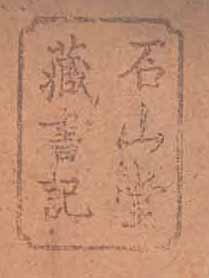 石山堂
藏書記